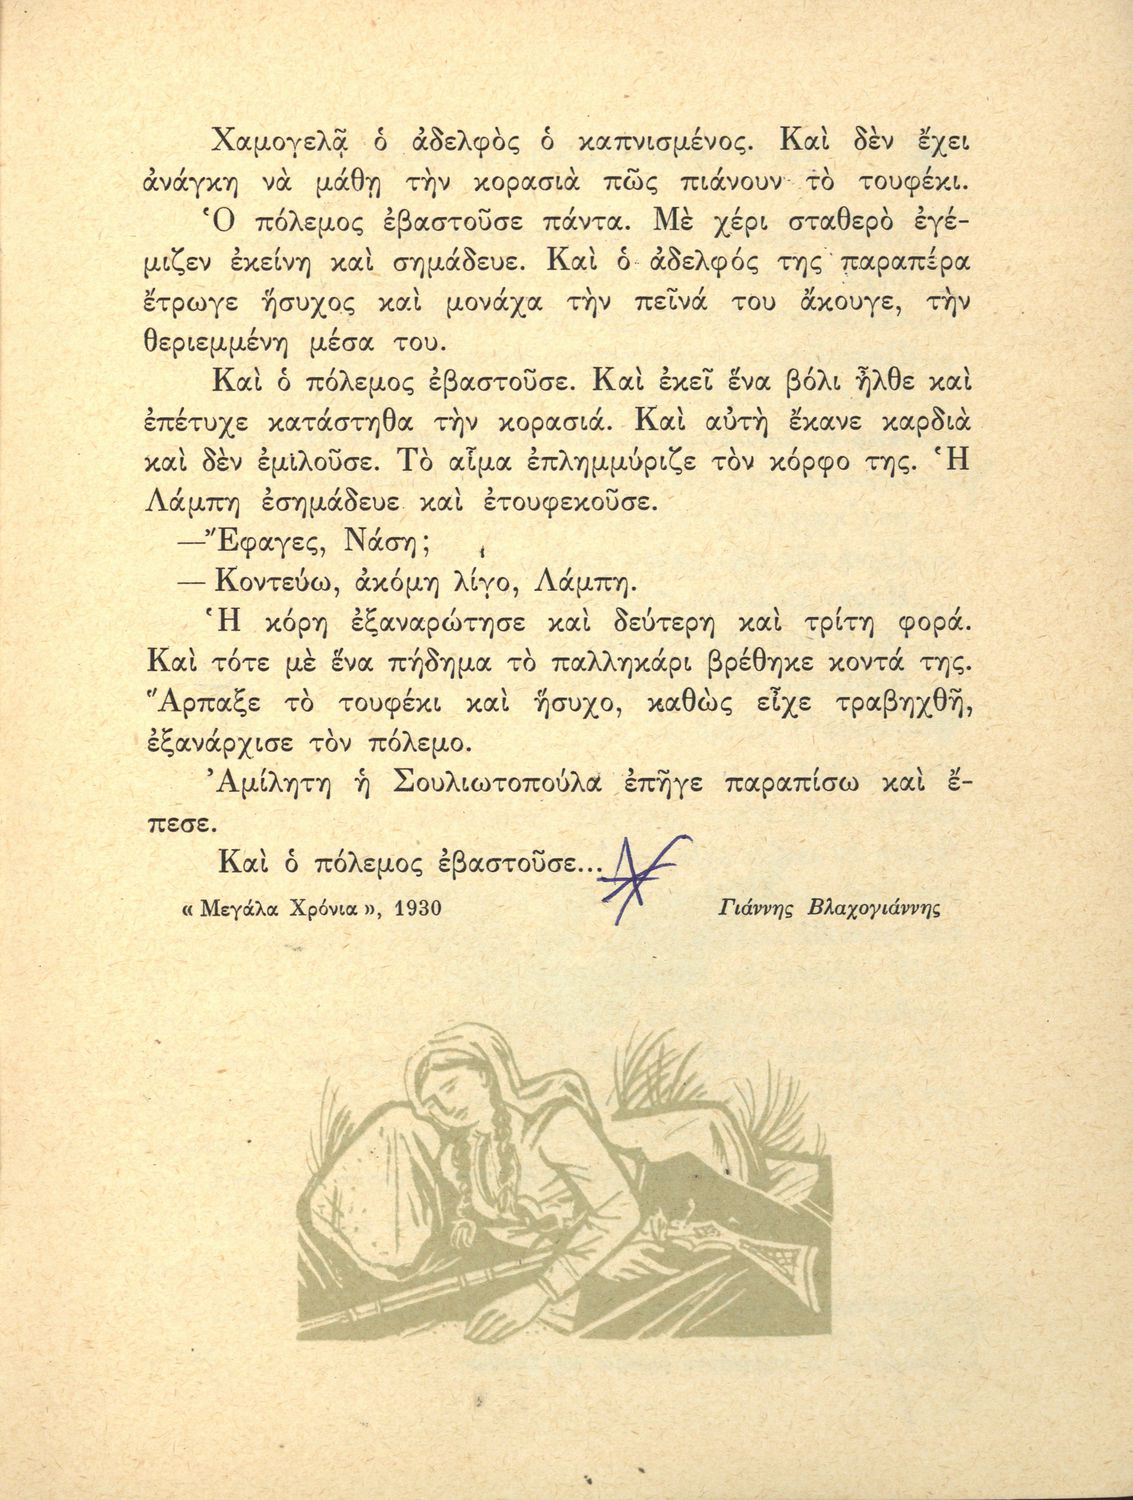 Χαμογελᾷ ὁ ἀδελφὸς ὁ καπνισμένος. Καὶ δὲν ἔχει
ἀνάγκη νὰ μάθῃ τὴν κορασιὰ πῶς πιάνουν τὸ τουφέκι.
Ὁ πόλεμος ἐβαστοῦσε πάντα. Μὲ χέρι σταθερὸ ἐγέ-
μιζεν ἐκείνη καὶ σημάδευε. Καὶ ὁ ἀδελφός της παραπέρα
ἔτρωγε ἥσυχος καὶ μονάχα τὴν πεῖνά του ἄκουγε, τὴν
θεριεμμένη μέσα του.
Καὶ ὁ πόλεμος ἐβαστοῦσε. Καὶ ἐκεῖ ἕνα βόλι ἦλθε καὶ
ἐπέτυχε κατάστηθα τὴν κορασιά. Καὶ αὐτὴ ἔκανε καρδιὰ
καὶ δὲν ἐμιλοῦσε. Τὸ αἷμα ἐπλημμύριζε τὸν κόρφο της. Ἡ
Λάμπη ἐσημάδευε καὶ ἐτουφεκοῦσε.
—Ἔφαγες, Νάση;
— Κοντεύω, ἀκόμη λίγο, Λάμπη.
Ἡ κόρη ἐξαναρώτησε καὶ δεύτερη καὶ τρίτη φορά.
Καὶ τότε μὲ ἕνα πήδημα τὸ παλληκάρι βρέθηκε κοντά της.
Ἅρπαξε τὸ τουφέκι καὶ ἥσυχο, καθὼς εἶχε τραβηχθῆ,
ἐξανάρχισε τὸν πόλεμο.
Ἀμίλητη ἡ Σουλιωτοπούλα ἐπῆγε παραπίσω καὶ ἔ-
πεσε.
Καὶ ὁ πόλεμος ἐβαστοῦσε...
« Μεγάλα Χρόνια », 1930 Γιάννης Βλαχογιάννης